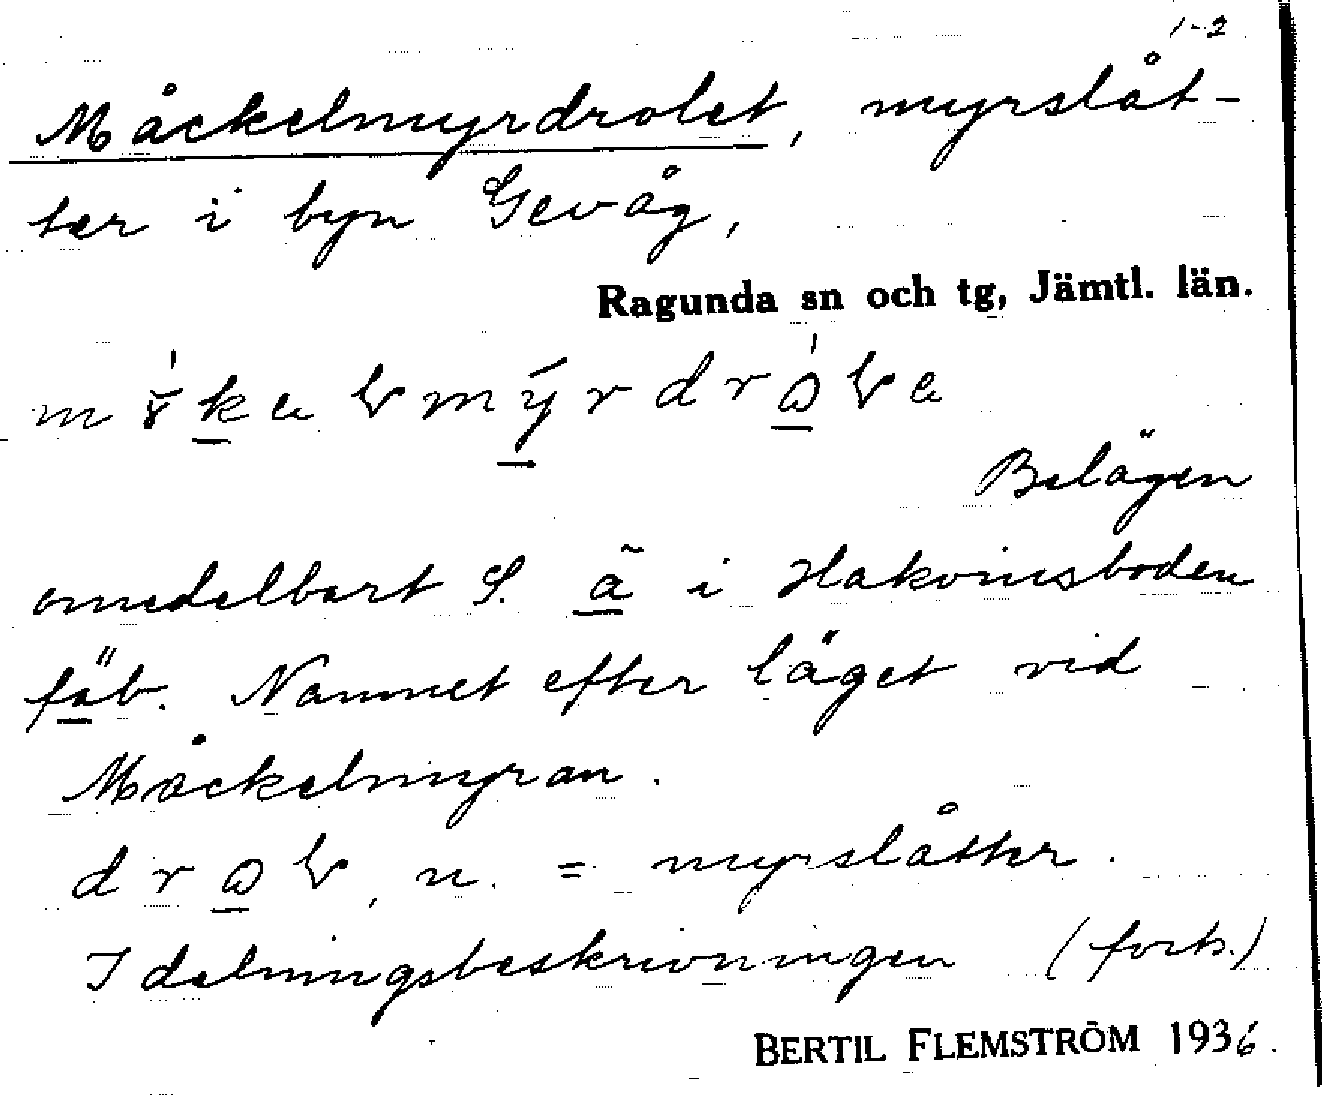 1-2
Måckelmyrdrolet, myrslåt-
ter i byn Gevåg,
Ragunda sn och tg, Jämtl. län.
Belägen
omedelbart S. ä i Hakonsboden
fäb. Namnet efter läget vid
Måckelmyran.
n. = myrslåtter.
I delningsbeskrivningen (forts.)
BERTIL FLEMSTRÖM 1936.